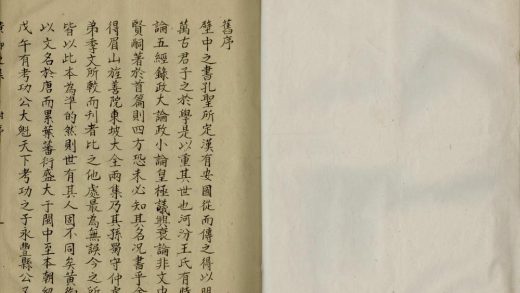 舊序
壁中之書孔聖所定漢有安國從而傳之得以明
萬古君子之於學是以重其世也河汾王氏有時
論五經錄政大論政小論皇極議興衰論非文中
賢嗣著於首篇則四方恐未必知其名況書乎
得眉山旌善院東坡大全兩集乃其孫蜀守仲
弟季文所較而刊者比之他處最為無誤今之所
皆以此本為準的然則世有其人固不同矣黃
以文名於唐而累葉蕃衍盛大于閩中至本朝紹
戊午有考功公大魁天下考功之子永豐縣公又